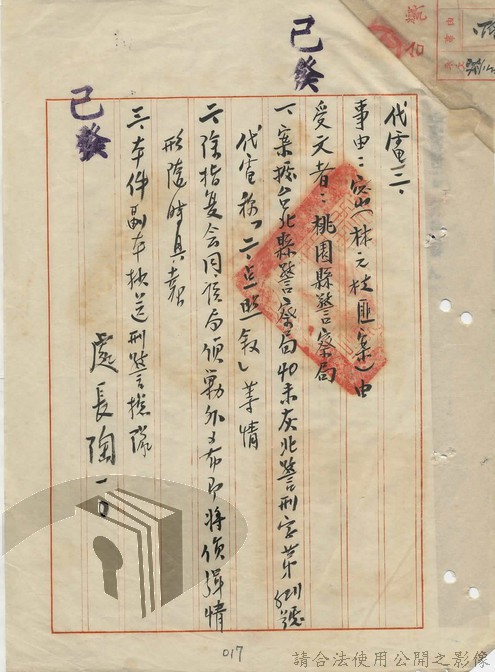 已發
已發
代電二、
事由：密（林元枝匪案）由
受文者：桃園縣警察局
一、案據台北縣警察局40未灰北警刑字第號
代電稱「二点照敘」等情
二、除指复会同該局偵勦外、希即將偵緝情
形隨時具報
三、本件副本抄送刑警總隊
處長陶一
017
請合法使用公開之影像